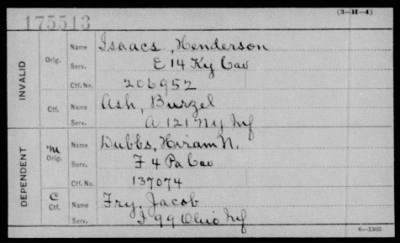 (3-H-4)
175513
INVALID
Orig.
Name Isaacs, Henderson
Serv. E 14 Ky Cav
Ctf. No. 206952
Ctf.
Name Ash, Burzel
Serv. A 121 Ny Inf
DEPENDENT
M
Orig.
Name Dubbs, Hiram N.
Serv. F 4 Pa Cav
Ctf. No. 137074
C
Ctf.
Name Fry, Jacob
Serv. I 99 Ohio Inf